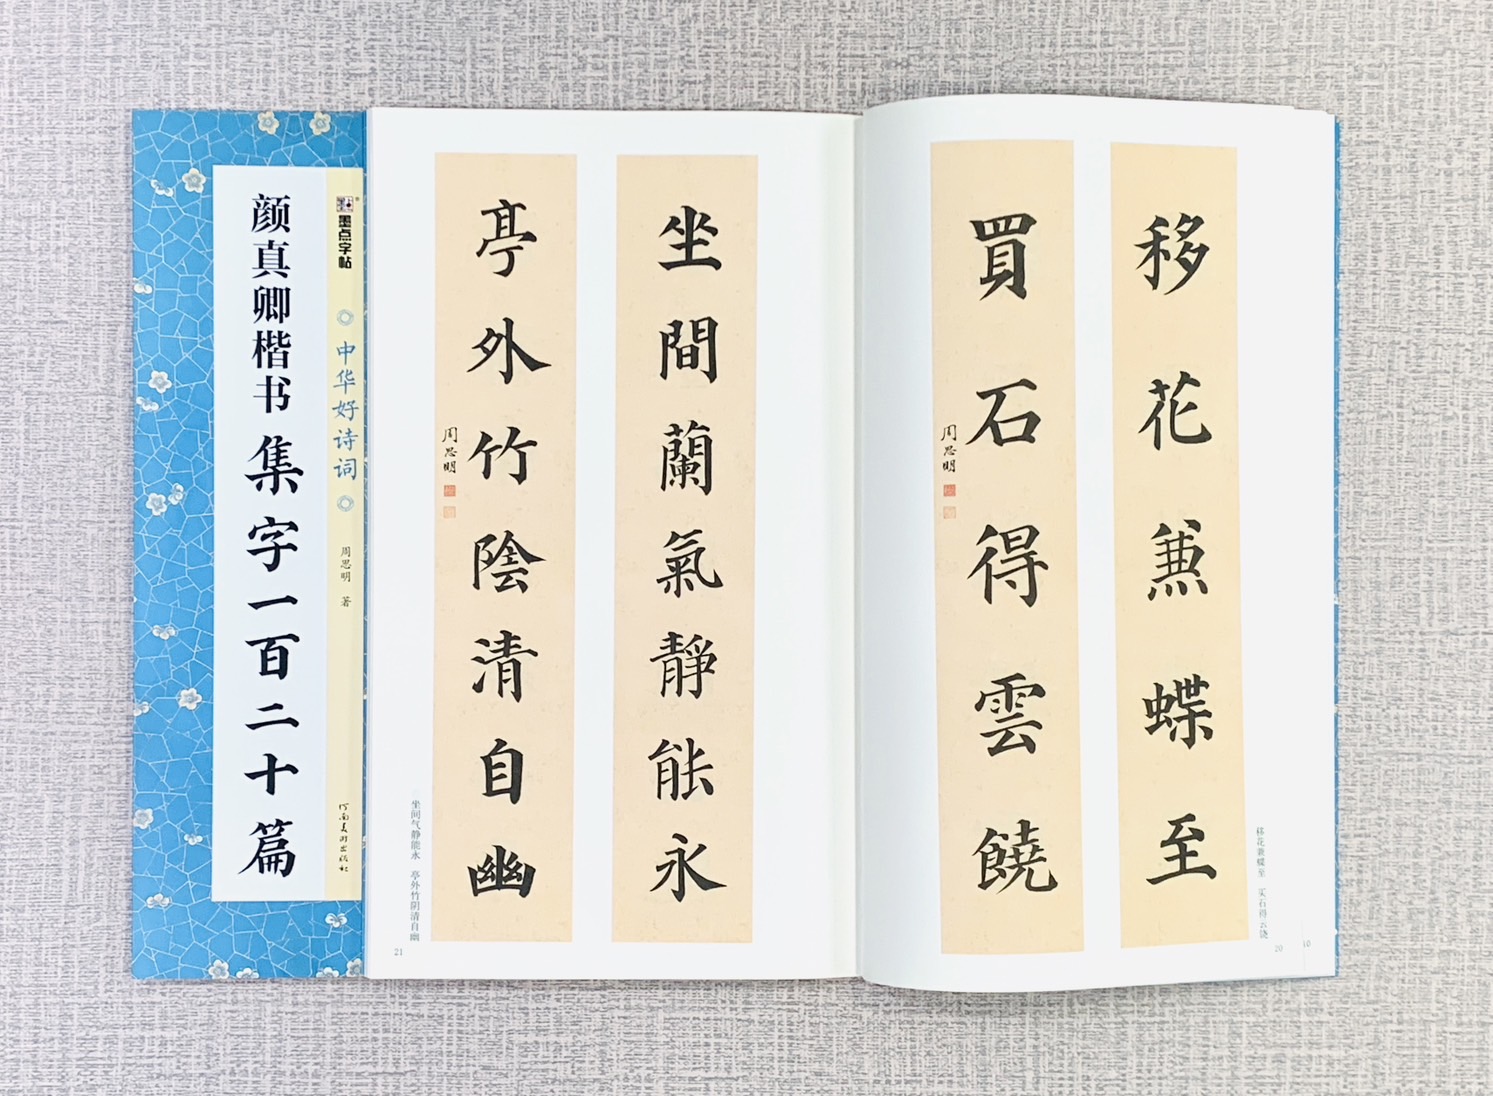 颜真卿楷书集字一百二十篇
墨点字帖
中华好诗词
周思明 著
河南美术出版社
移花兼蝶至
買石得雲饒
周思明
移花兼蝶至 买石得云饶
20
10
坐間蘭氣靜能永
亭外竹陰清自幽
周思明
坐间气静能永 亭外竹阴清自幽
21